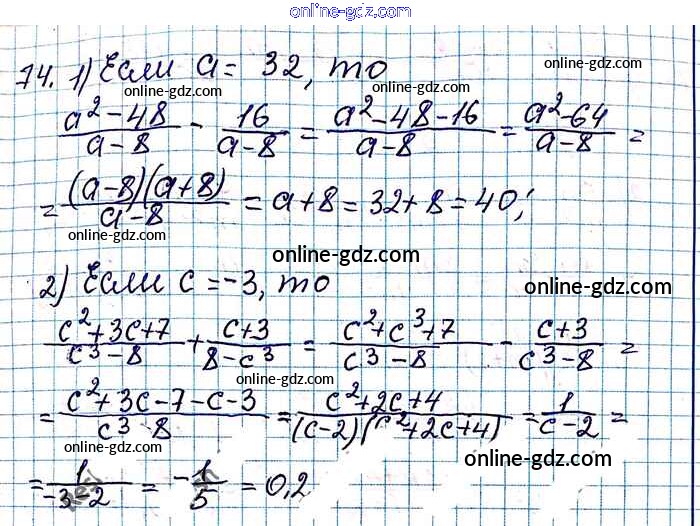 online-gdz.com
74. 1) Если a = 32, то online-gdz.com
online-gdz.com online-gdz.com
(a² - 48)/(a - 8) - 16/(a - 8) = (a² - 48 - 16)/(a - 8) = (a² - 64)/(a - 8) =
= ((a - 8)(a + 8))/(a - 8) = a + 8 = 32 + 8 = 40;
online-gdz.com
online-gdz.com
2) Если c = -3, то online-gdz.com
(c² + 3c + 7)/(c³ - 8) + (c + 3)/(8 - c³) = (c² + c³ + 7)/(c³ - 8) - (c + 3)/(c³ - 8) =
online-gdz.com
online-gdz.com
= (c² + 3c - 7 - c - 3)/(c³ 8) = (c² + 2c + 4)/((c - 2)(c² + 2c + 4)) = 1/(c - 2) =
online-gdz.com online-gdz.com
= 1/(-3 - 2) = -1/5 = 0,2
online-gdz.com